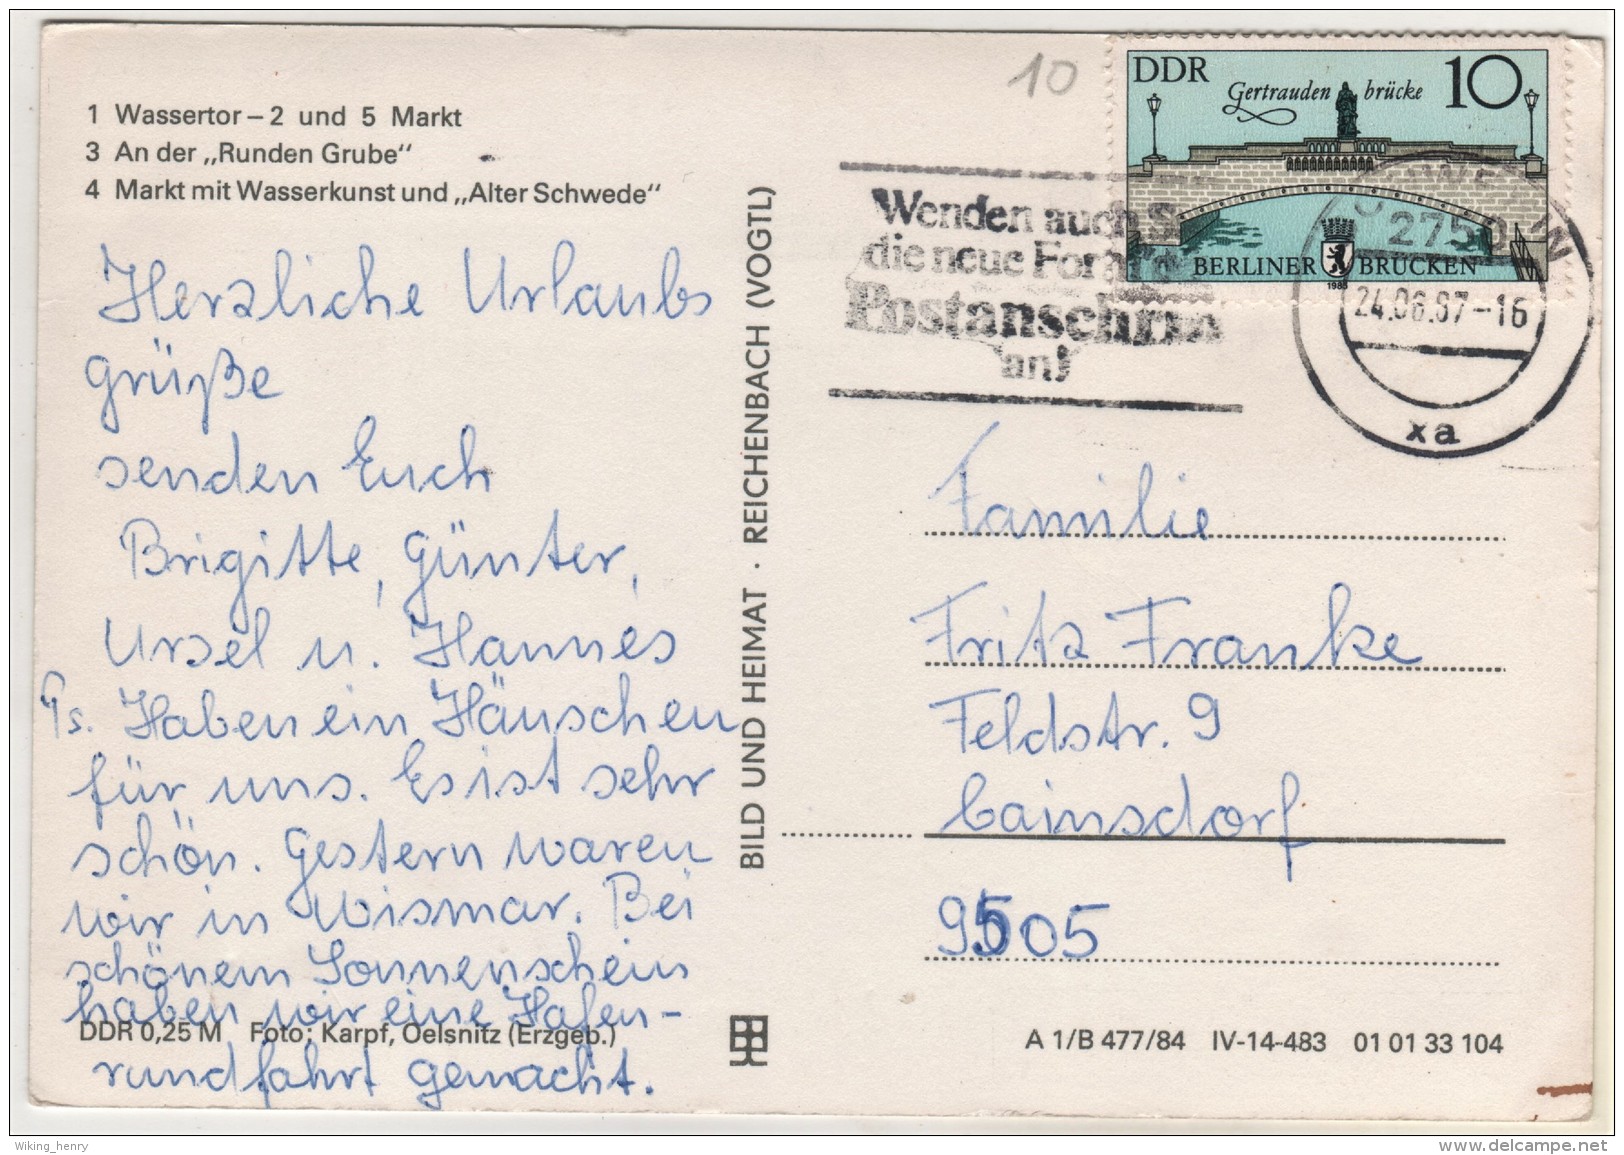 1 Wassertor – 2 und 5 Markt
3 An der „Runden Grube“
4 Markt mit Wasserkunst und „Alter Schwede“
Herzliche Urlaubs
grüße
senden Euch
Brigitte, Günter,
Ursel u. Hannes
Ps. Haben ein Häuschen
für uns. Es ist sehr
schön. Gestern waren
wir in Wismar. Bei
schönem Sonnenschein
haben wir eine Hafen-
rundfahrt gemacht.
DDR 0,25 M Foto: Karpf, Oelsnitz (Erzgeb.)
BILD UND HEIMAT · REICHENBACH (VOGTL)
10
DDR Gertrauden brücke 10
BERLINER BRÜCKEN
1985
Wenden auch S
die neue Form d
Postanschrift
an!
2750
24.06.87-16
xa
Familie
Fritz Franke
Feldstr. 9
Cainsdorf
9505
A 1/B 477/84 IV-14-483 01 01 33 104
Wiking_henry
www.delcampe.net